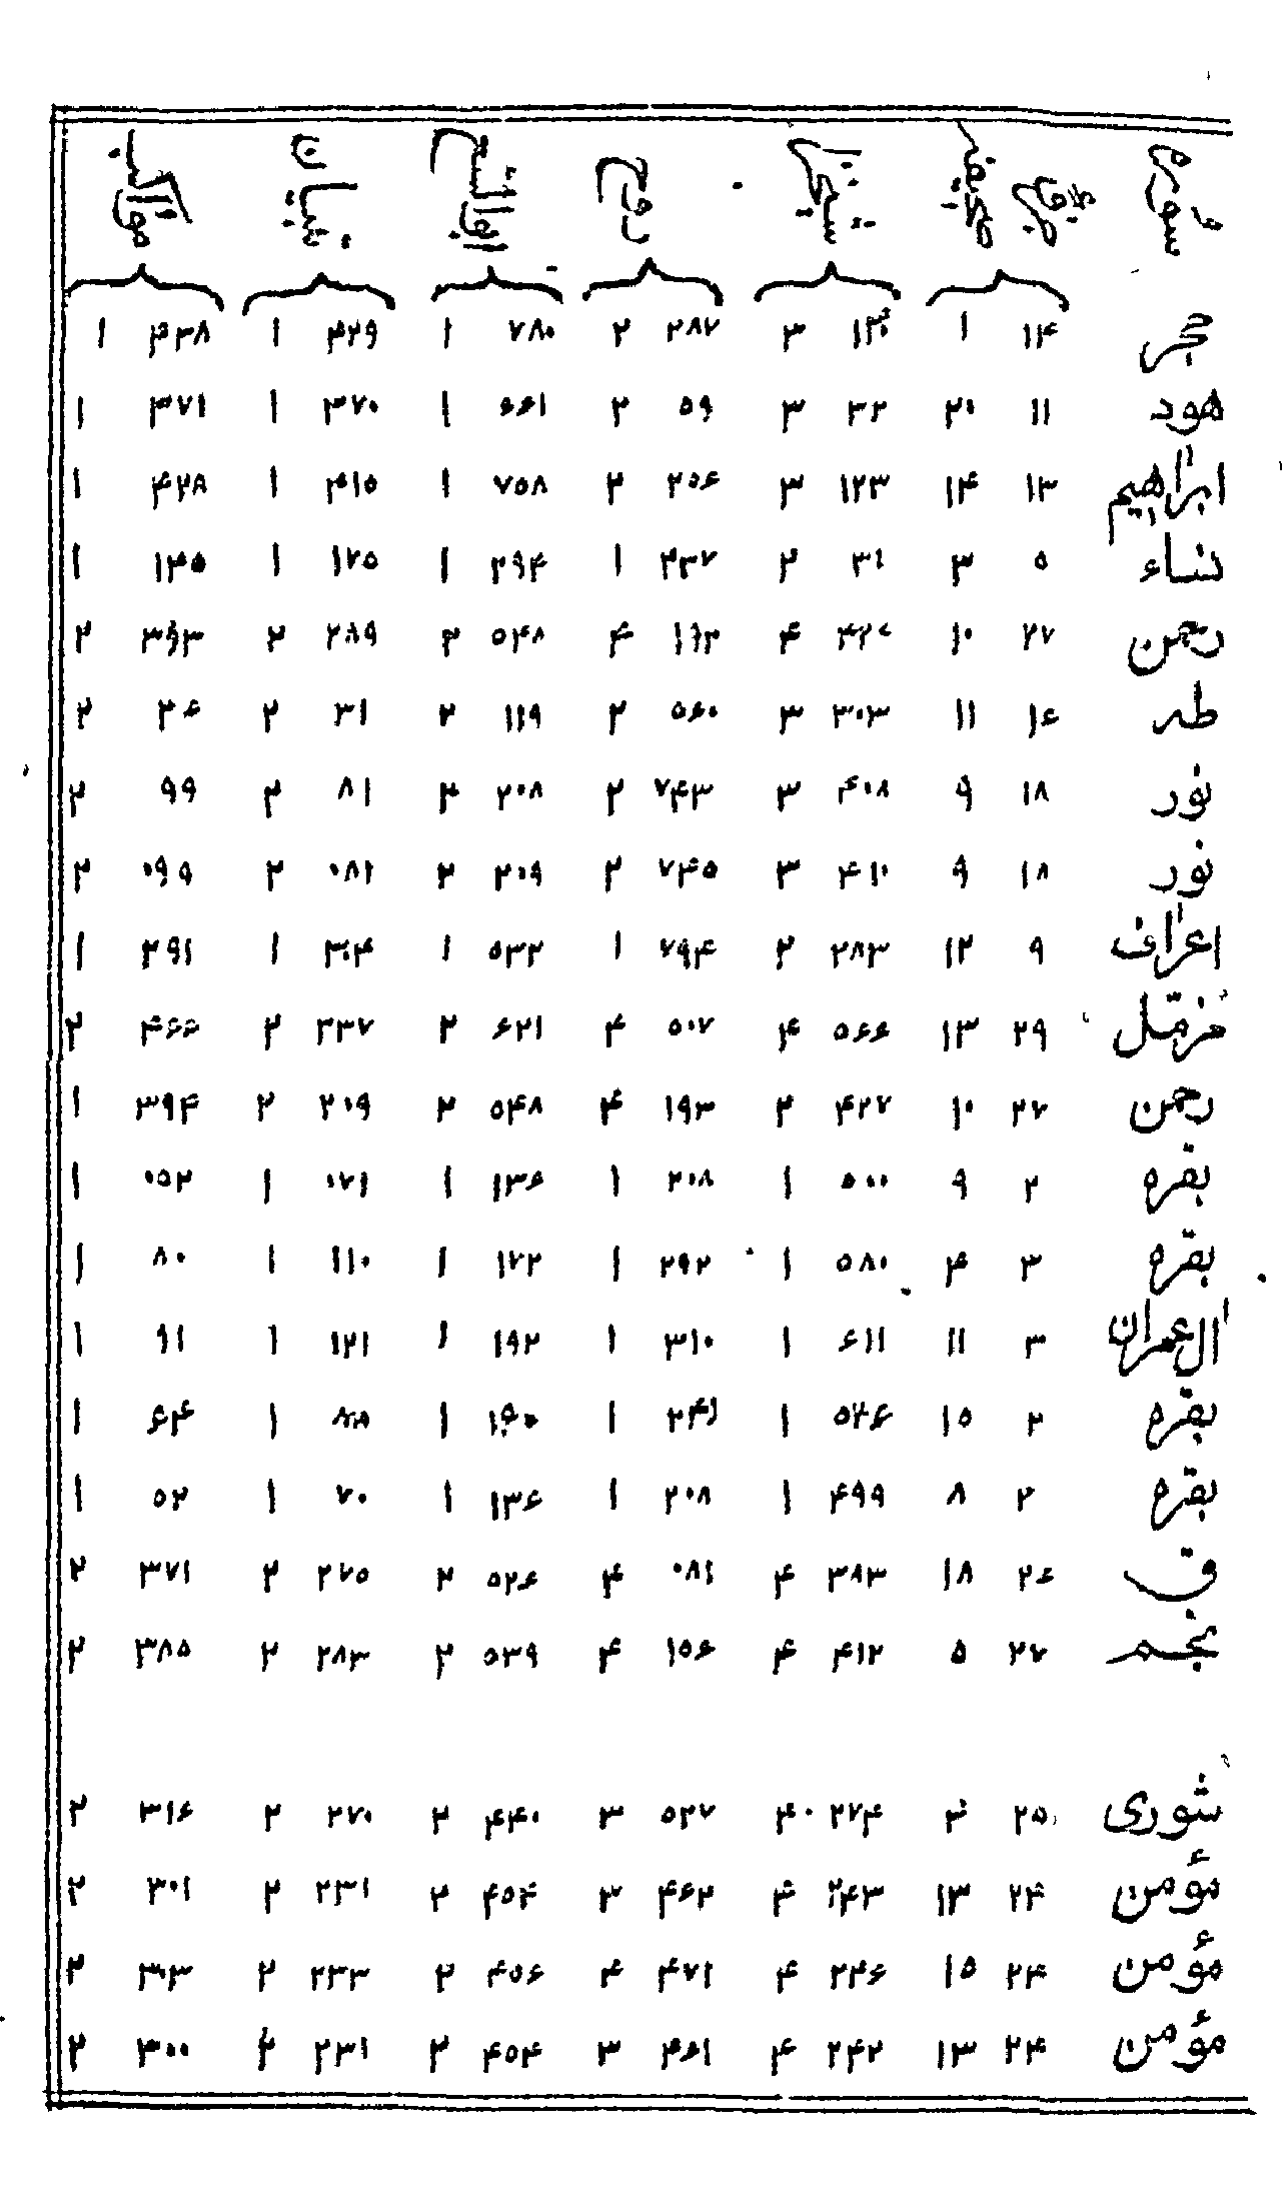 سوره ورق صفحه شیخ روح انوار التنزیل
حجر ۱۴ ۱ ۳ ۲۸۷ ۲ ۷۸۰ ۱ ۴۲۹ ۱ ۴۳۸ ۱
هود ۱۱ ۲۰ ۳۲ ۳ ۵۹ ۲ ۶۶۱ ۱ ۳۷۰ ۱ ۳۷۱ ۱
ابراهیم ۱۳ ۱۴ ۱۲۳ ۳ ۲۵۶ ۲ ۷۵۸ ۱ ۴۱۵ ۱ ۴۲۸ ۱
نساء ۵ ۳ ۳۱ ۲ ۲۳۷ ۱ ۲۹۴ ۱ ۱۷۵ ۱ ۱۳۵ ۱
رحمن ۲۷ ۱۰ ۴۲۷ ۴ ۱۹۳ ۴ ۵۴۸ ۲ ۲۸۹ ۲ ۳۹۳ ۲
طه ۱۶ ۱۱ ۳۰۳ ۳ ۵۶۰ ۲ ۱۱۹ ۲ ۳۱ ۲ ۳۶ ۲
نور ۱۸ ۹ ۴۰۸ ۳ ۷۴۳ ۲ ۲۰۸ ۲ ۸۱ ۲ ۹۹ ۲
نور ۱۸ ۹ ۴۱۰ ۳ ۷۴۵ ۲ ۲۰۹ ۲ ۰۸۲ ۲ ۰۹۹ ۲
اعراف ۹ ۱۲ ۲۸۳ ۲ ۷۹۴ ۱ ۵۳۲ ۱ ۳۰۴ ۱ ۲۹۱ ۱
مزمّل ۲۹ ۱۳ ۵۶۶ ۴ ۵۰۷ ۴ ۶۲۱ ۲ ۳۳۷ ۲ ۴۶۶ ۲
رحمن ۲۷ ۱۰ ۴۲۷ ۴ ۱۹۳ ۴ ۵۴۸ ۲ ۲۰۹ ۲ ۳۹۴ ۱
بقره ۲ ۹ ۵۰۰ ۱ ۲۰۸ ۱ ۱۳۶ ۱ ۰۷۱ ۱ ۰۵۲ ۱
بقره ۳ ۴ ۵۸۰ ۱ ۲۹۲ ۱ ۱۷۲ ۱ ۱۱۰ ۱ ۸۰ ۱
ال عمران ۳ ۱۱ ۶۱۱ ۱ ۳۱۰ ۱ ۱۹۲ ۱ ۱۲۱ ۱ ۹۱ ۱
بقره ۲ ۱۵ ۵۴۶ ۱ ۲۴۹ ۱ ۱ ۸۸ ۱ ۶۴ ۱
بقره ۲ ۸ ۴۹۹ ۱ ۲۰۸ ۱ ۱۳۶ ۱ ۷۰ ۱ ۵۲ ۱
ق ۲۶ ۱۸ ۳۸۳ ۴ ۰۸۱ ۴ ۵۲۶ ۲ ۲۷۵ ۲ ۳۷۱ ۲
نجم ۲۷ ۵ ۴۱۲ ۴ ۱۵۶ ۴ ۵۳۹ ۲ ۲۸۳ ۲ ۳۸۵ ۲
شوری ۲۵ ۴ ۲۷۴ ۴ ۵۲۷ ۳ ۴۴۰ ۲ ۲۷۰ ۲ ۳۱۶ ۲
مؤمن ۲۴ ۱۳ ۲۴۳ ۴ ۴۶۲ ۳ ۴۵۴ ۲ ۲۳۱ ۲ ۳۰۱ ۲
مؤمن ۲۴ ۱۵ ۲۴۶ ۴ ۴۷۱ ۴ ۴۵۶ ۲ ۲۳۳ ۲ ۳۰۳ ۲
مؤمن ۲۴ ۱۳ ۲۴۲ ۴ ۴۶۱ ۳ ۴۵۴ ۲ ۲۳۱ ۲ ۳۰۰ ۲